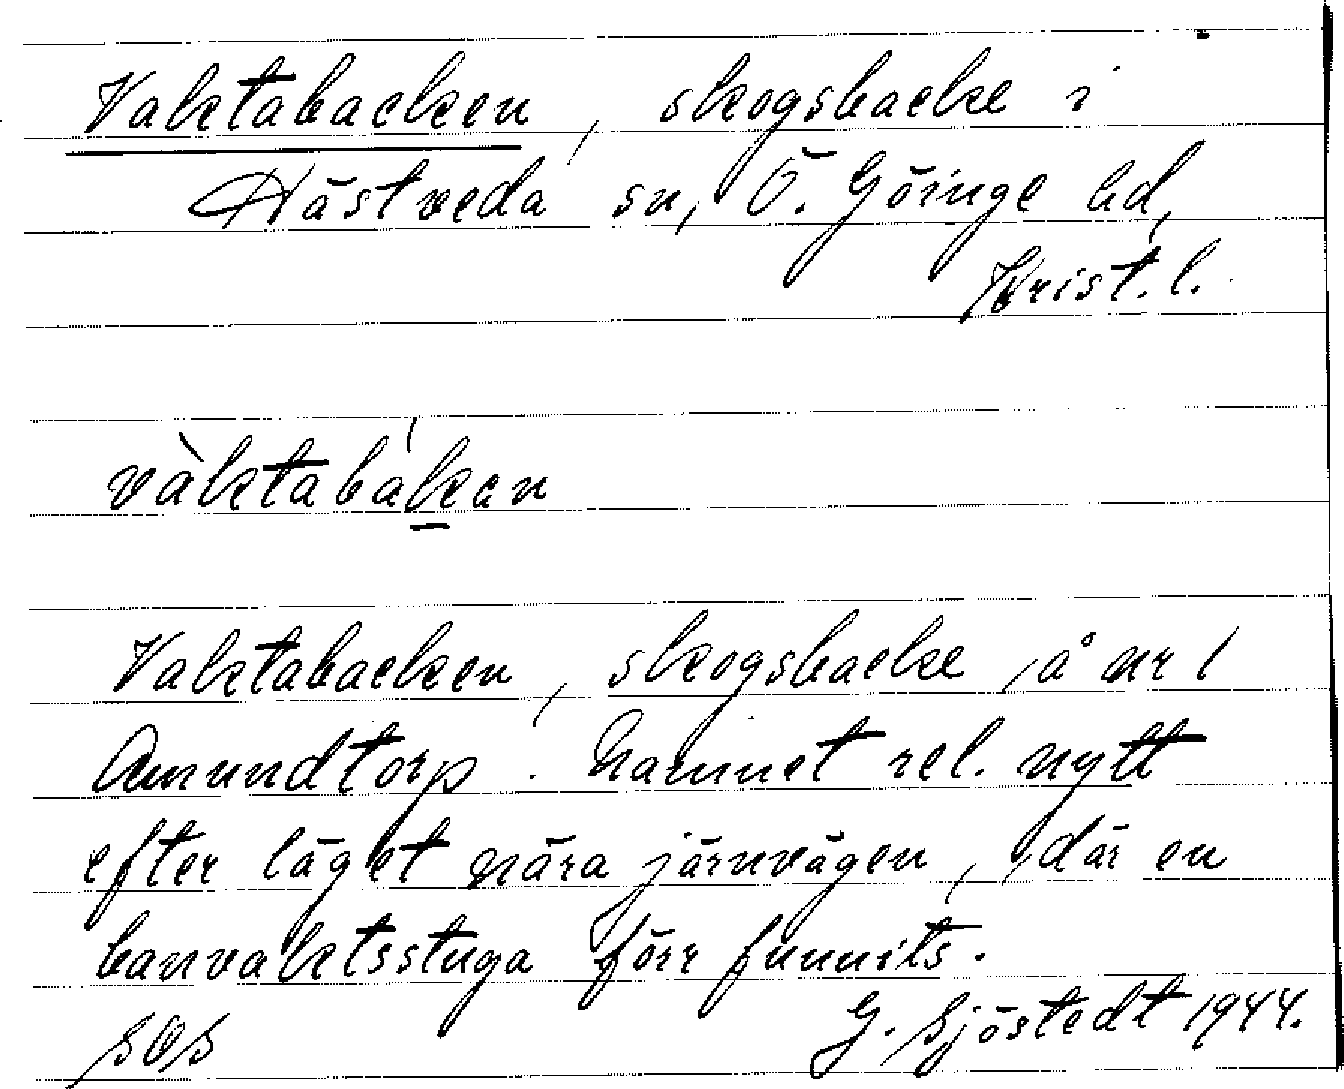 Vaktabacken, skogsbacke i
Hästveda sn, Ö. Göinge hd,
Krist. l.
vàktabákan
Vaktabacken, skogsbacke, å nr 1
Amundtorp. Namnet rel. nytt
efter läget nära järnvägen, där en
banvaktsstuga förr funnits.
SOS G. Sjöstedt 1944.